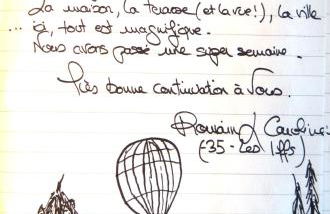 La maison, la terrasse (et la vue!), la ville
... ici, tout est magnifique.
Nous avons passé une super semaine.
Très bonne continuation à vous.
Romain & Caroline
(35 - Les Iffs)